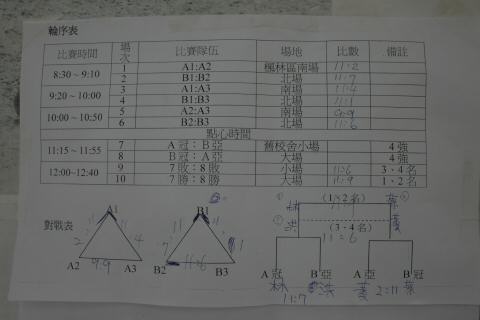 輪序表
比賽時間 場次 比賽隊伍 場地 比數 備註
8:30~9:10 1 A1:A2 楓林區南場 11:2
2 B1:B2 北場 11:7
9:20~10:00 3 A1:A3 南場 11:4
4 B1:B3 北場 11:1
10:00~10:50 5 A2:A3 南場 9:9
6 B2:B3 北場 11:6
點心時間
11:15~11:55 7 A冠:B亞 舊校舍小場 4強
8 B冠:A亞 大場 4強
12:00~12:40 9 7敗:8敗 小場 11:6 3、4名
10 7勝:8勝 大場 11:9 1、2名
對戰表
A1
11 11
2 4
A2 9:9 A3
B1
11 11
7 1
B2 11:6 B3
林 (1、2名) 葉
洪 (3、4名) 黃
11:6
A冠 B亞 A亞 B冠
林 洪 黃 2:11 葉
11:7